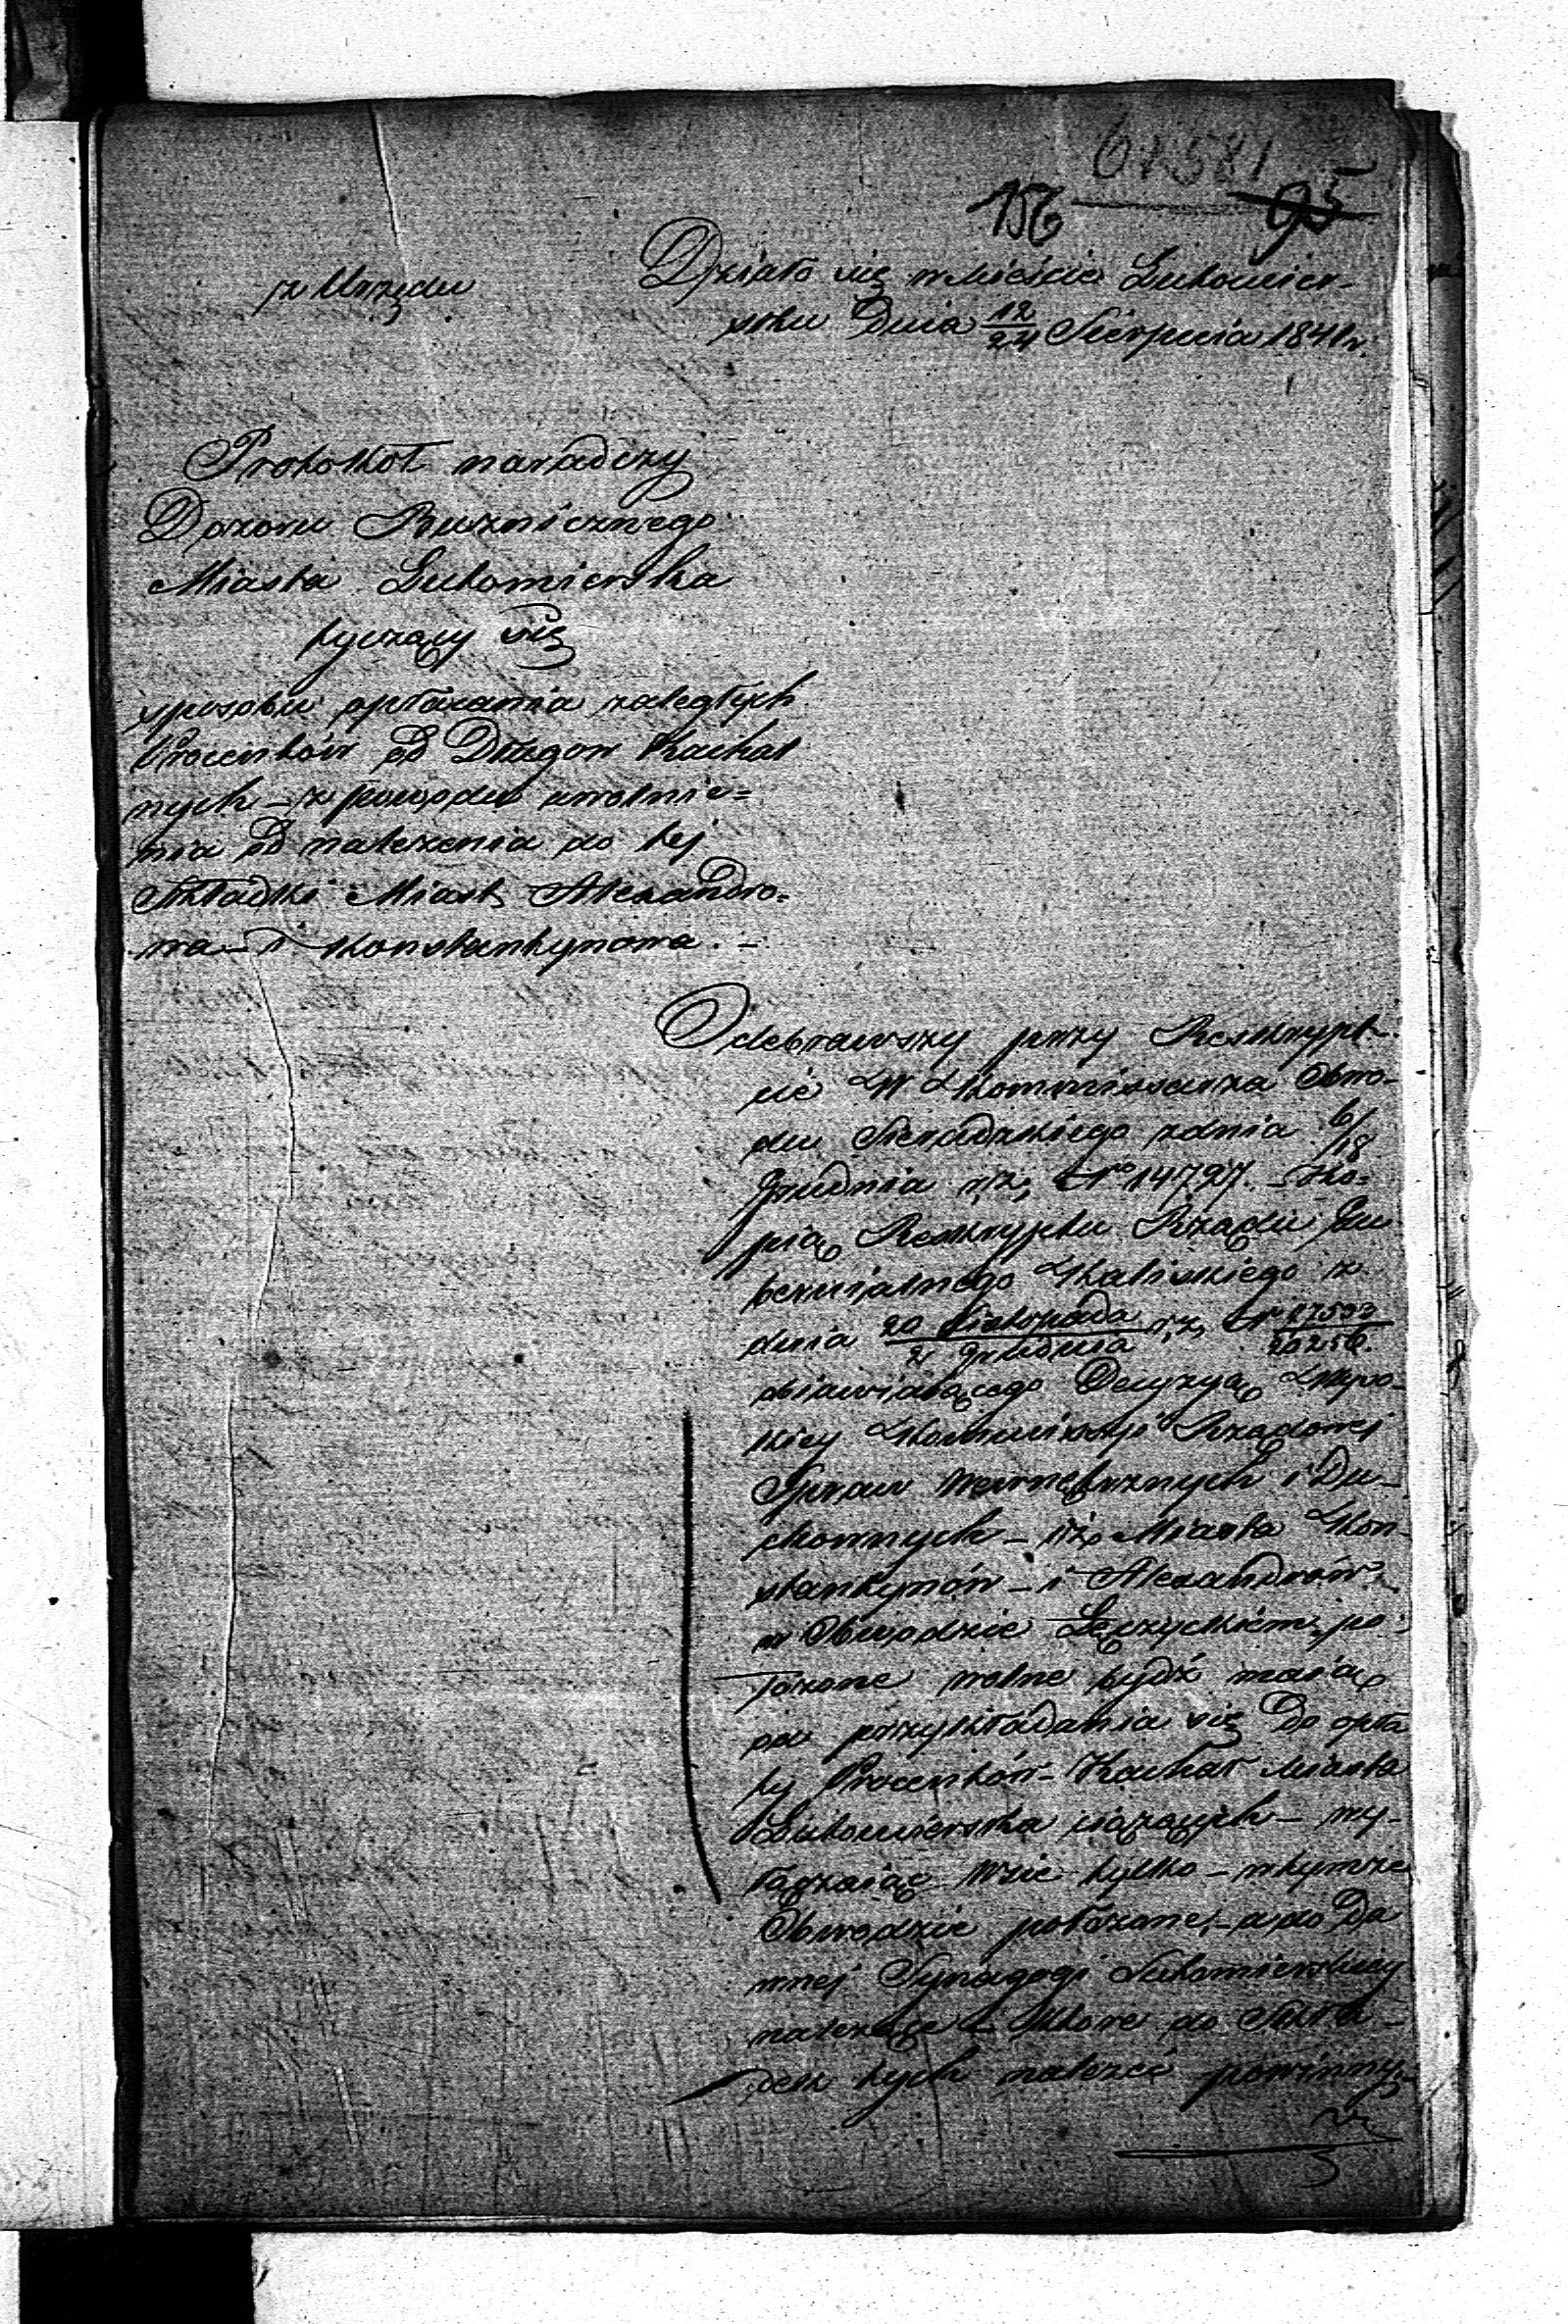 67581
156 95
z Urzędu
Działo się w Mieście Lutomier-
sku Dnia 12/24 Sierpnia 1841 r.
Protokół naradczy
Dozoru Buznicznego
Miasta Lutomierska
tyczący się
sposobu opłacania zaległych
Procentów od Długow Kachal
nych – z powodu uwolnie=
nia od należenia do tej
składki Miast Alexandro=
wa – i Konstantynowa. –
Odebrawszy przy Reskryp-
cie W Kommissarza Obwo-
du Sieradzkiego z dnia 6/18
Grudnia r. z. No 14797. – Ko=
pią Reskryptu Rządu Gu
bernialnego Kaliskiego z
dnia 20 Listopada/2 Grudnia r. z. Nr
obiawiaiącego Decyzyą Wyso-
kiey Kommissyi Rządowej
Spraw Wewnętrznych i Du-
chownych – iż Miasta Kon-
stantynów – i Alexandrów
w Obwodzie Łęczyckiem po=
łożone wolne bydź maią
od przykładania się do opła
ty Procentów – Kachał Miasta
Lutomierska ciążących – wy-
łączaiąc Wsie tylko – w tymże
Obwodzie położone, – a do Da
wnej Synagogi Lutomierskiey
należące – które do Skła-
dek tych należeć powinny,